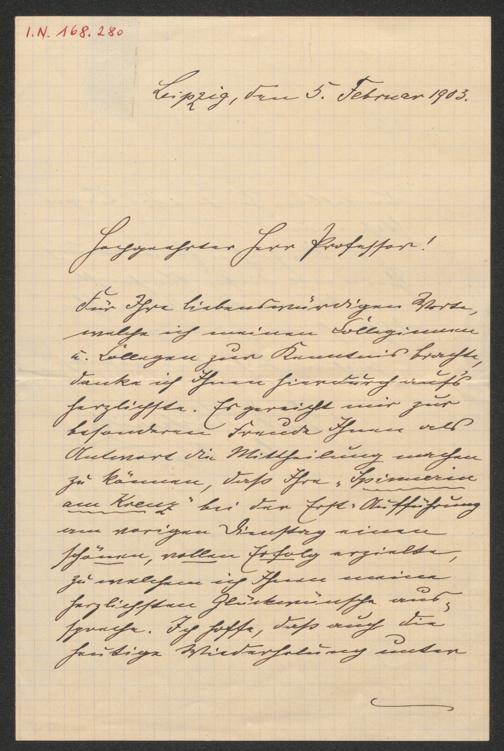 I.N. 168.280
Leipzig, den 5. Februar 1903.
Hochgeehrter Herr Professor!
Für Ihre liebenswürdigen Worte,
welche ich meinen Colleginnen
u. Collegen zur Kenntnis brachte,
danke ich Ihnen hierdurch auf's
herzlichste. Es gereicht mir zur
besonderen Freude Ihnen als
Antwort die Mittheilung machen
zu können, daß Ihre „Spinnerin
am Kreuz" bei der Erst-Aufführung
am vorigen Dienstag einen
schönen, vollen Erfolg erzielte,
zu welchem ich Ihnen meine
herzlichsten Glückwünsche aus-
spreche. Ich hoffe, daß auch die
heutige Wiederholung unter